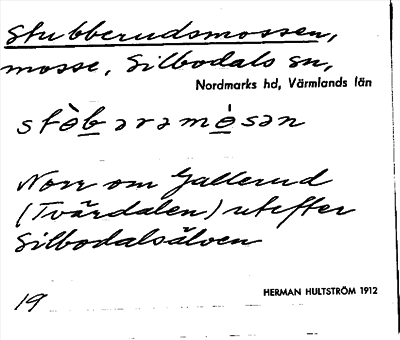 Stubberudsmossen,
mosse, Silbodals sn,
Nordmarks hd, Värmlands län
stɵ̀bərəmɵ́sən
Norr om Gallerud
(Tvärdalen) utefter
Silbodalsälven
19
HERMAN HULTSTRÖM 1912